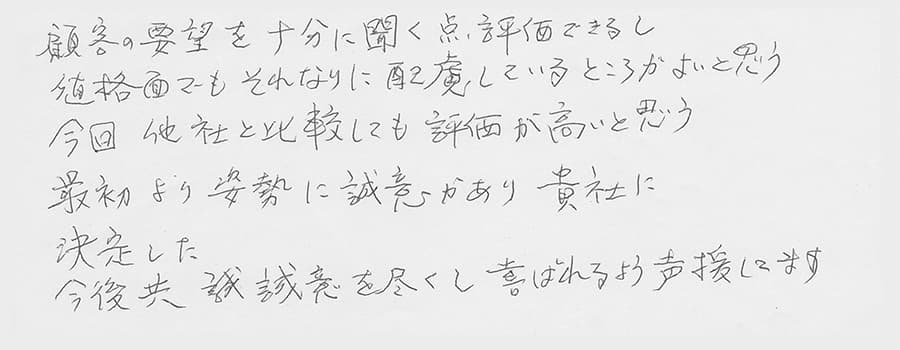 顧客の要望を十分に聞く点、評価できるし
値格面でもそれなりに配慮しているところがよいと思う
今回 他社と比較しても評価が高いと思う
最初より姿勢に誠意があり 貴社に
決定した
今後共 誠誠意を尽くし喜ばれるよう声援してます